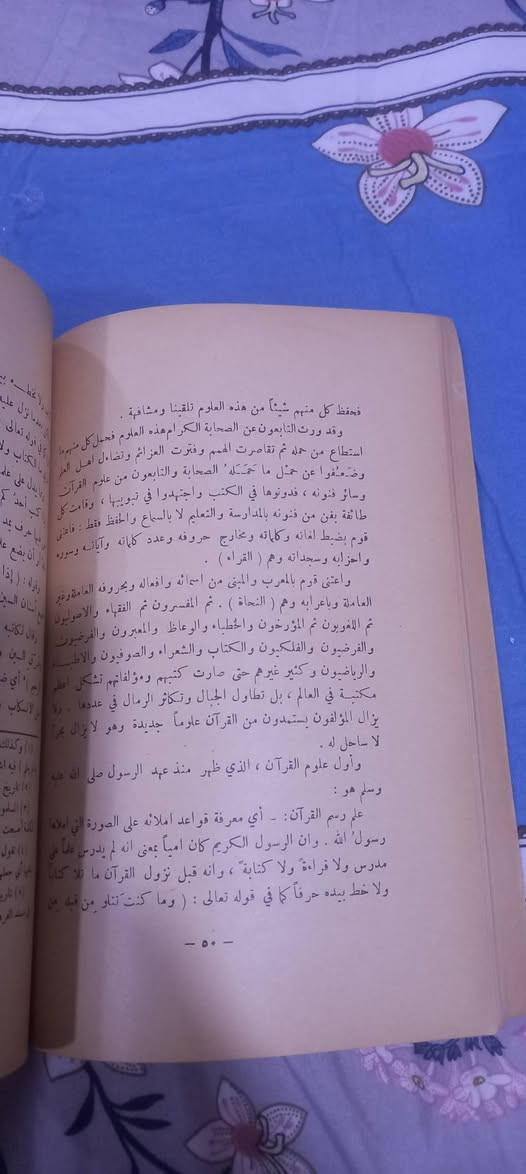 فحفظ كل منهم شيئاً من هذه العلوم تلقينا ومشافهة .
وقد ورث التابعون عن الصحابة الكرام هذه العلوم فحمل كل منهم ما
استطاع من حمله ثم تقاصرت الهمم وفترت العزائم وتضاءل اهل العلم
وضَعفوا عن حمْل ما حمَلَهُ الصحابة والتابعون من علوم القرآن
وسائر فنونه ، فدونوها في الكتب واجتهدوا في تبويبها ، وقامت كل
طائفة بفن من فنونه بالمدارسة والتعليم لا بالسماع والحفظ فقط : فاعتنى
قوم بضبط لغاته وكلماته ومخارج حروفه وعدد كلماته وآياته وسوره
واحزابه وسجداته وهم ( القراء ) .
واعتنى قوم بالمعرب والمبنى من اسمائه وافعاله وبحروفه العاملة وغير
العاملة وباعرابه وهم ( النحاة ) . ثم المفسرون ثم الفقهاء والاصوليون
ثم اللغويون ثم المؤرخون والخطباء والوعاظ والمعبرون والفرضيون
والفرضيون والفلكيون والكتاب والشعراء والصوفيون والاطباء
والرياضيون وكثير غيرهم حتى صارت كتبهم ومؤلفاتهم تشكل اعظم
مكتبة في العالم ، بل تطاول الجبال وتكاثر الرمال في عددها . ولا
يزال المؤلفون يستمدون من القرآن علوماً جديدة وهو لا يزال بحراً
لا ساحل له .
وأول علوم القرآن ، الذي ظهر منذ عهد الرسول صلى الله عليه
وسلم هو :
علم رسم القرآن : - أي معرفة قواعد املائه على الصورة التي املاها
رسولُ الله . وان الرسول الكريم كان امياً بمعنى انه لم يدرس علماً على
مدرس ولا قراءةً ولا كتابةً ، وانه قبل نزول القرآن ما تلا كتاباً
ولا خط بيده حرفاً كما في قوله تعالى : ( وما كنت تتلو من قبله من
- ٥٠ -